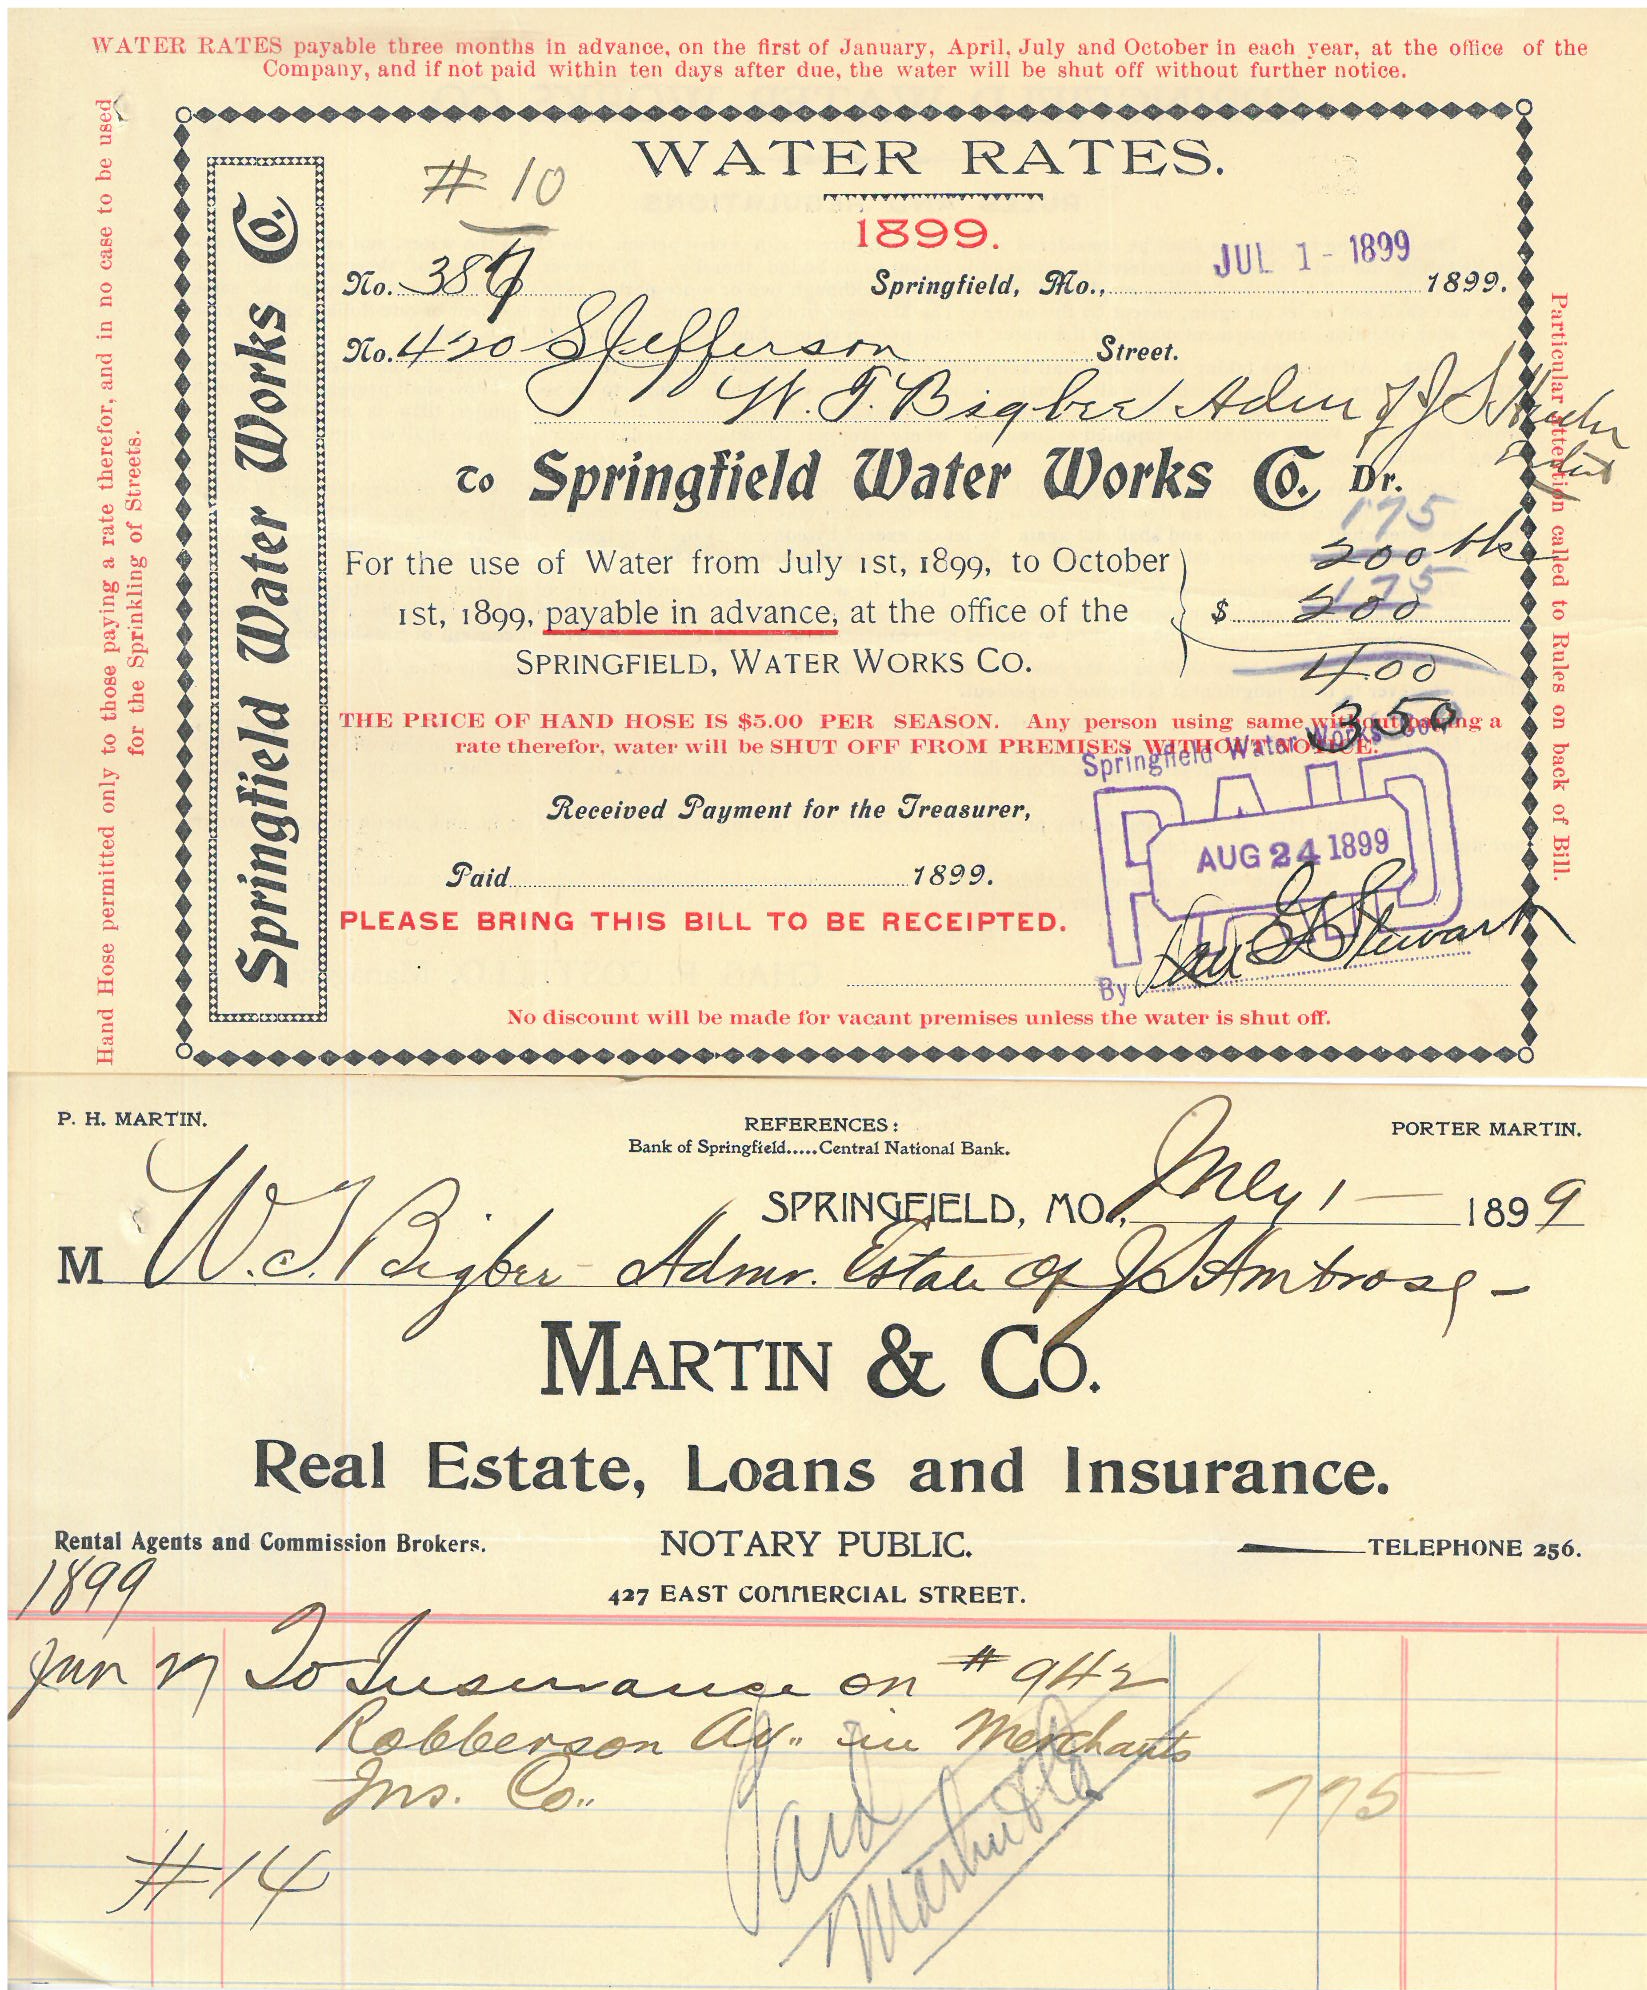 WATER RATES payable three months in advance, on the first of January, April, July and October in each year, at the office of the
Company, and if not paid within ten days after due, the water will be shut off without further notice.
Hand Hose permitted only to those paying a rate therefor, and in no case to be used
for the Sprinkling of Streets.
Springfield Water Works Co.
# 10
WATER RATES.
1899.
No. 387
Springfield, Mo., JUL 1 - 1899 1899.
No. 420 S Jefferson Street.
W. T. Bigbee Adm of J S
To Springfield Water Works Co. Dr.
175
200
For the use of Water from July 1st, 1899, to October
1st, 1899, payable in advance, at the office of the
SPRINGFIELD, WATER WORKS CO.
175
$ 200
400
350
THE PRICE OF HAND HOSE IS $5.00 PER SEASON. Any person using same without paying a
rate therefor, water will be SHUT OFF FROM PREMISES WITHOUT NOTICE.
Springfield Water Works Co.,
PAID
AUG 24 1899
Received Payment for the Treasurer,
Paid 1899.
PLEASE BRING THIS BILL TO BE RECEIPTED.
By Stewart
No discount will be made for vacant premises unless the water is shut off.
Particular attention called to Rules on back of Bill.
P. H. MARTIN.
REFERENCES:
Bank of Springfield.....Central National Bank.
PORTER MARTIN.
SPRINGFIELD, MO., May 1 — 1899
M W. T. Bigbee - Admr. Estate of J S Ambrose -
MARTIN & CO.
Real Estate, Loans and Insurance.
Rental Agents and Commission Brokers.
NOTARY PUBLIC.
TELEPHONE 256.
427 EAST COMMERCIAL STREET.
1899
Jan 27 To Insurance on # 942
Robberson Av. in Merchants
Ins. Co. 775
Paid
Martin & Co
#14